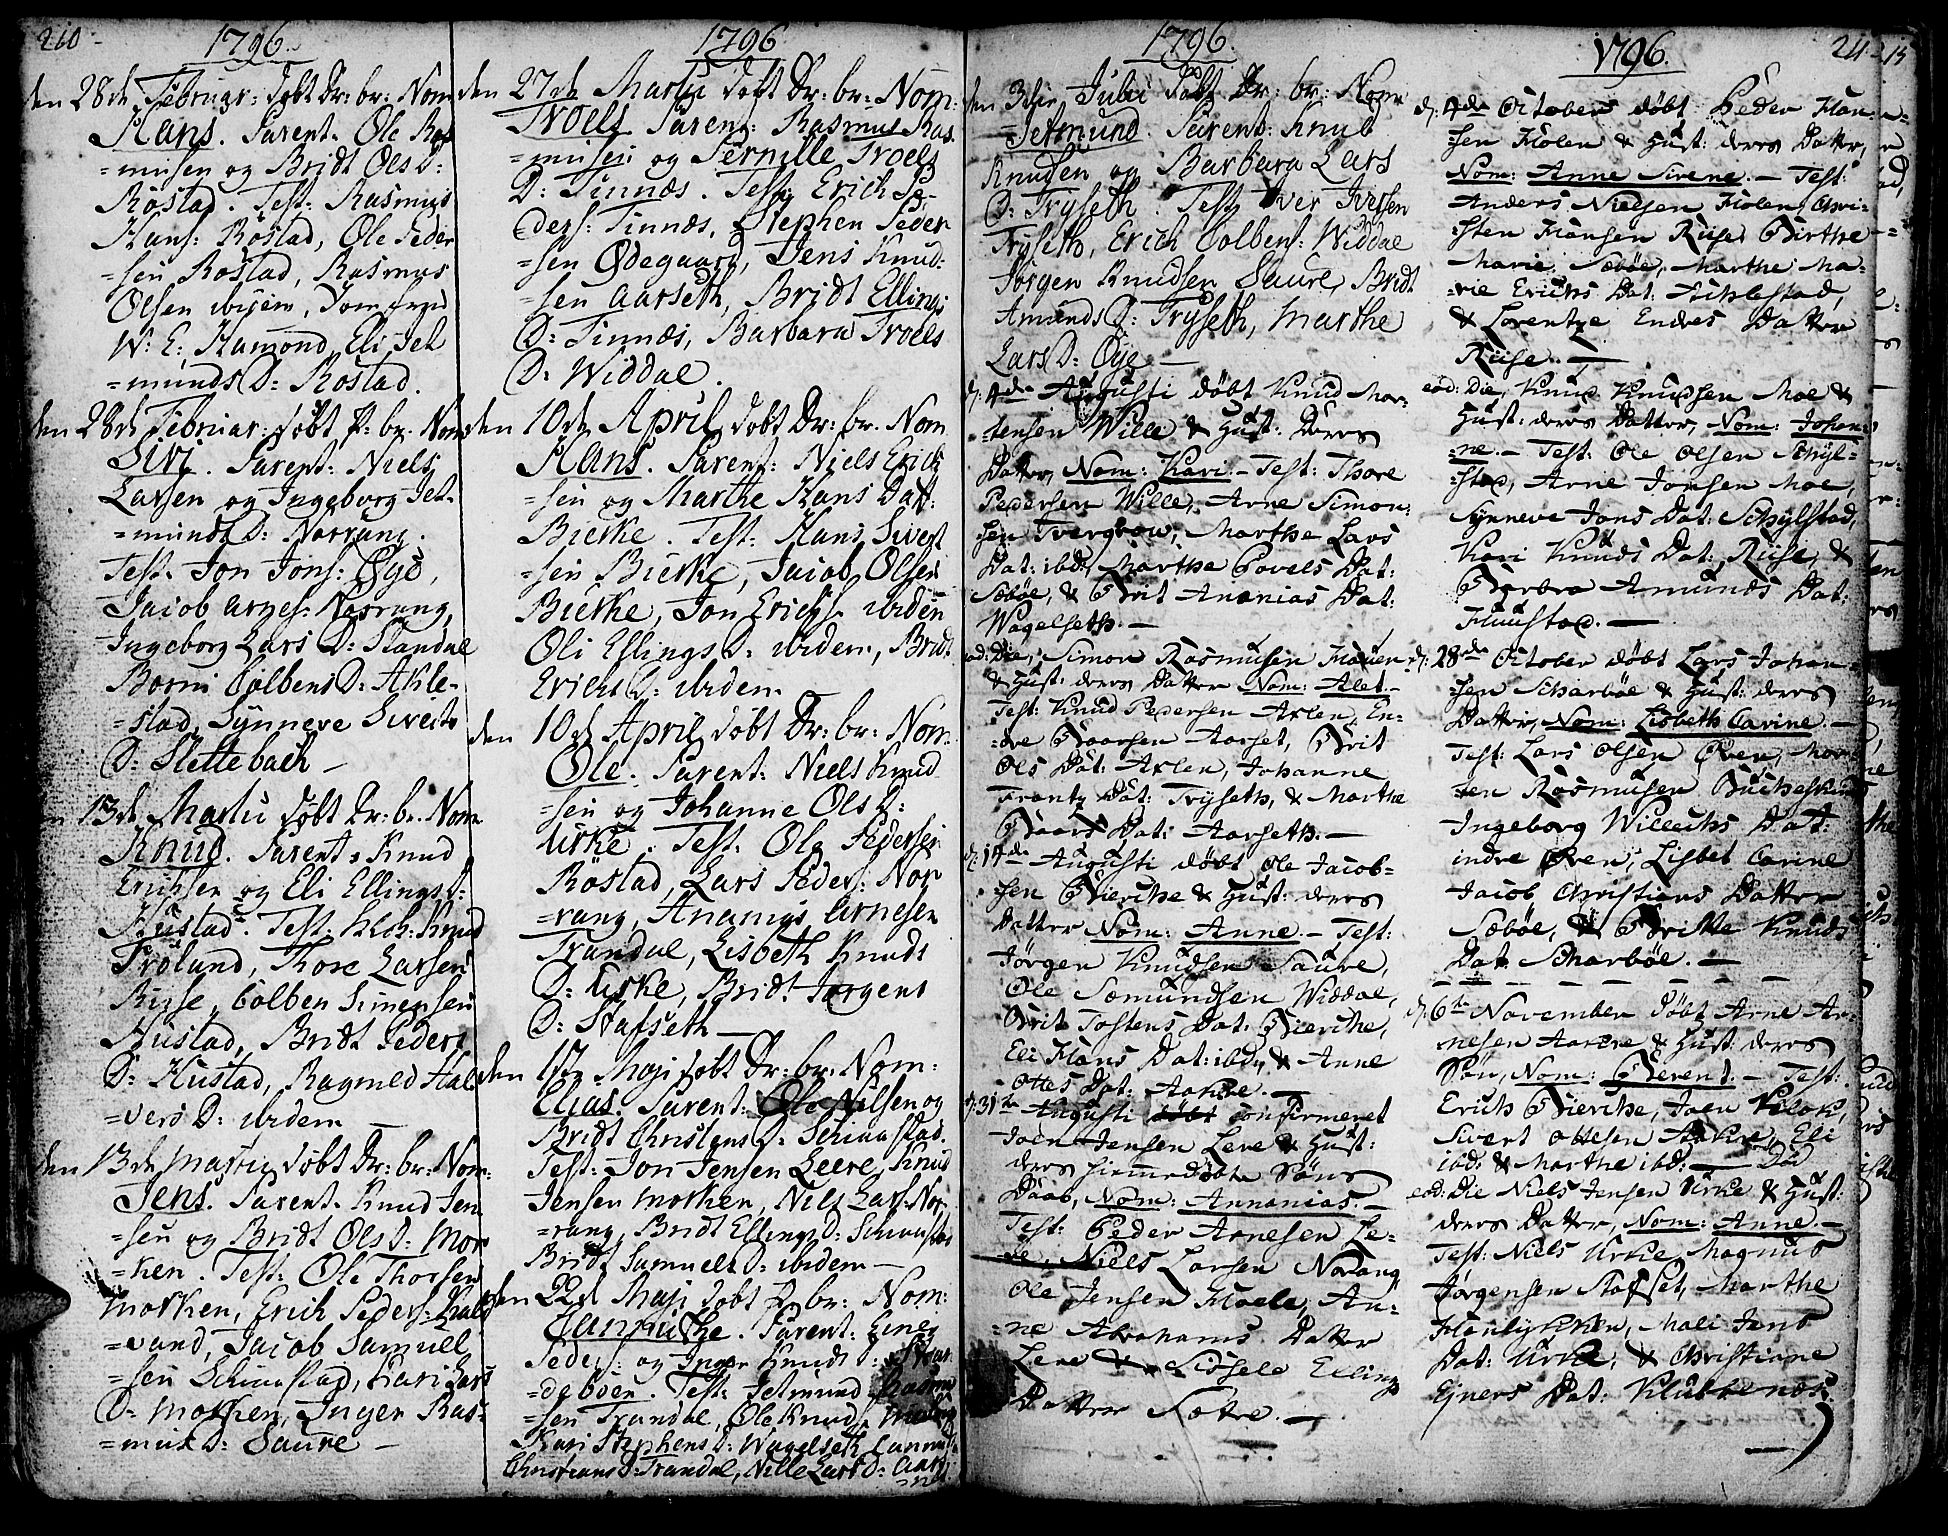 210
1796.
den 28de Februar: døbt Dr: br: Nom
Hans. Parent. Ole Ras
=musen og Bridt Ols D:
Røstad. Test: Rasmus
Hans: Røstad, Ole Peder
=sen Røstad, Rasmus
Olsen ibidem, Jomfrue
W: E: Hamond, Eli Jet
=munds D: Røstad.
den 28de Februar: døbt P: br. Nom
Siri. Parent: Niels
Larsen og Ingeborg Jet-
=munds D: Norrung.
Test: Jon Jons: Øye,
Jacob Arnes: Norrung,
Ingeborg Lars D: Standal
Borni Colbens D: Akle-
=stad, Synneve Siverts
D: Slettebach —
13de Martii døbt Dr: br. Nom
Knud. Parent: Knud
Erichsen og Eli Ellings D:
Hustad. Test: Knud
Froland, Thore Larsen
Riise, Colben Simensen
Hustad, Bridt Peders
D: Hustad, Ragnild Hal
=vers D: ibidem —
den 13de Martii døbt Dr: br: Nom:
Jens. Parent. Knud Jen
=sen og Bridt Ols D: Mor
=ken. Test: Ole Thorsen
Morken, Erich Peders: Kals
=vand, Jacob Samuel
=sen Schiaastad, Kari Lars
D: Morken, Inger Ras-
=mus D: Saure —
1796
den 27de Martii døbt Dr: br: Nom:
Troels. Parent: Rasmus Ras
=musen og Pernille Troels
D: Finnæs. Test: Erich Pe-
ders: Finnæs, Stephen Peder
=sen Ødegaard, Jens Knud:
=sen Aarseth, Bridt Ellings
D: Finnæs, Barbara Troels
D: Widdal.
den 10de April døbt Dr: br. Nom
Hans. Parent: Niels Erich
=sen og Marthe Hans Dat:
Bierke. Test: Hans Sivert
=sen Bierke, Jacob Olsen
Bierke, Jon Erichs: ibidem
Oli Ellings D: ibidem, Bridt
Erichs D: ibidem
den 10de April døbt Dr: br: Nom:
Ole. Parent: Niels Knud
=sen og Johanne Ols D:
Urke. Test: Ole Pedersen
Røstad, Lars Peders: Nor
=rang, Ananias Arnesen
Trandal, Lisbeth Knuds
D: Urke, Bridt Jørgens
D: Stafseth —
den 1ste Maji døbt Dr: br: Nom:
Elias. Parent: Ole Nilsen og
Bridt Christens D: Schiaastad.
Test: Jon Jensen Leere, Knud
Jensen Morken, Nils Lars: Nor
=rang, Bridt Ellings D: Schiaastad
Bridt Samuels D: ibidem —
den 22de Maji døbt P: br: Nom:
Parent: Einer
Peders: og Inger Knuds D:
=deboen. Test: Jetmund Rasmu
=sen Trandal, Ole Knuds:
Kari Stephens D: Wagelseth
Christians D: Trandal, Nille Lars D:
1796.
den 3die Julii døbt Dr: br: Nom
Jetmund. Parent: Knud
Knudsen og Barbara Lars
D: Tryseth. Test: Iver Iversen
Tryseth, Erich Colbens: Widdal
Jørgen Knudsen Saure, Bridt
Amunds D: Tryseth, Marthe
Lars D: Øye —
d: 4de Augusti døbt Knud Mor-
=tensen Wille & Hust: deres
Datter, Nom: Kari. — Test: Thore
Pedersen Wille, Arne Simon-
sen Tvergrow, Marthe Lars
Dat: ibd:, Marthe Povels Dat:
Sæbøe, & Brit Ananias Dat:
Wagelseth. —
eod: Die, Simon Rasmusen Hauen
& Hust: deres Datter Nom: Alet. —
Test: Knud Pedersen Axlen, En-
=dre Baarsen Aarset, Brit
Ols Dat: Axlen, Johanne
Frantz Dat: Tryseth, & Marthe
Baars Dat: Aarseth. —
d: 14de Augusti døbt Ole Jacob-
sen Bierche & Hust: deres
Datter Nom: Anne. — Test:
Jørgen Knudsen Saure,
Ole Sæmundsen Widdal,
Brit Tostens Dat: Bierche,
Eli Hans Dat: ibd:, & Anne
Ottes Dat: Aarsne. —
d: 31te Augusti døbt confirmeret
Joen Jensen Lere & Hust:
deres hiemmedøbte Søns
Daab, Nom: Annanias. —
Test: Peder Arnesen Le-
re, Niels Larsen Norang
Ole Jensen Haele, An-
ne Abrahams Datter
Lere & Sissele Ellings
Datter Sætre. —
1796.
211
d: 4de October døbt Peder Han-
sen Holen & Hust: deres Datter,
Nom: Anne Sirene. — Test:
Anders Nielsen Holen, Chri-
=sten Hansen Riise, Birthe
Marie Sæbøe, Marthe Ma-
=rie Erichs Dat: Achlestad,
& Lorentze Endres Datter
Riise. —
eod: Die, Knud Knudsen Moe &
Hust: deres Datter, Nom: Johan-
ne. — Test: Ole Olsen Schyl-
=stad, Arne Jonsen Moe,
Synneve Jons Dat: Schylstad,
Kari Knuds Dat: Riise, &
Barbra Amunds Dat:
Haustad. —
d: 28de October døbt Lars Johan-
=sen Scharbøe & Hust: deres
Datter, Nom: Lisbeth Carine. —
Test: Lars Olsen Øven,
=sen Rasmusen
Ingeborg Willichs Dat:
indre Øven, Lisbet Carine
Jacob Christians Datter
Sæbøe, & Brithe Knuds
Dat: Scharbøe. —
d: 6te November døbt Arne Ar-
nesen Aarsne & Hust: deres
Søn, Nom: Berent. — Test:
Erich Bierche, Joen
Sivert Ottesen Eli
ibd: & Marthe ibd: — Død
eod: Die Niels Jensen Urke & Hust:
deres Datter, Nom: Anne. —
Test: Niels Urke, Magnus
Jørgensen Stafset, Marthe
Mali Jens
Dat: Urke, & Christiane
Ejners Dat: Klubbenæs.